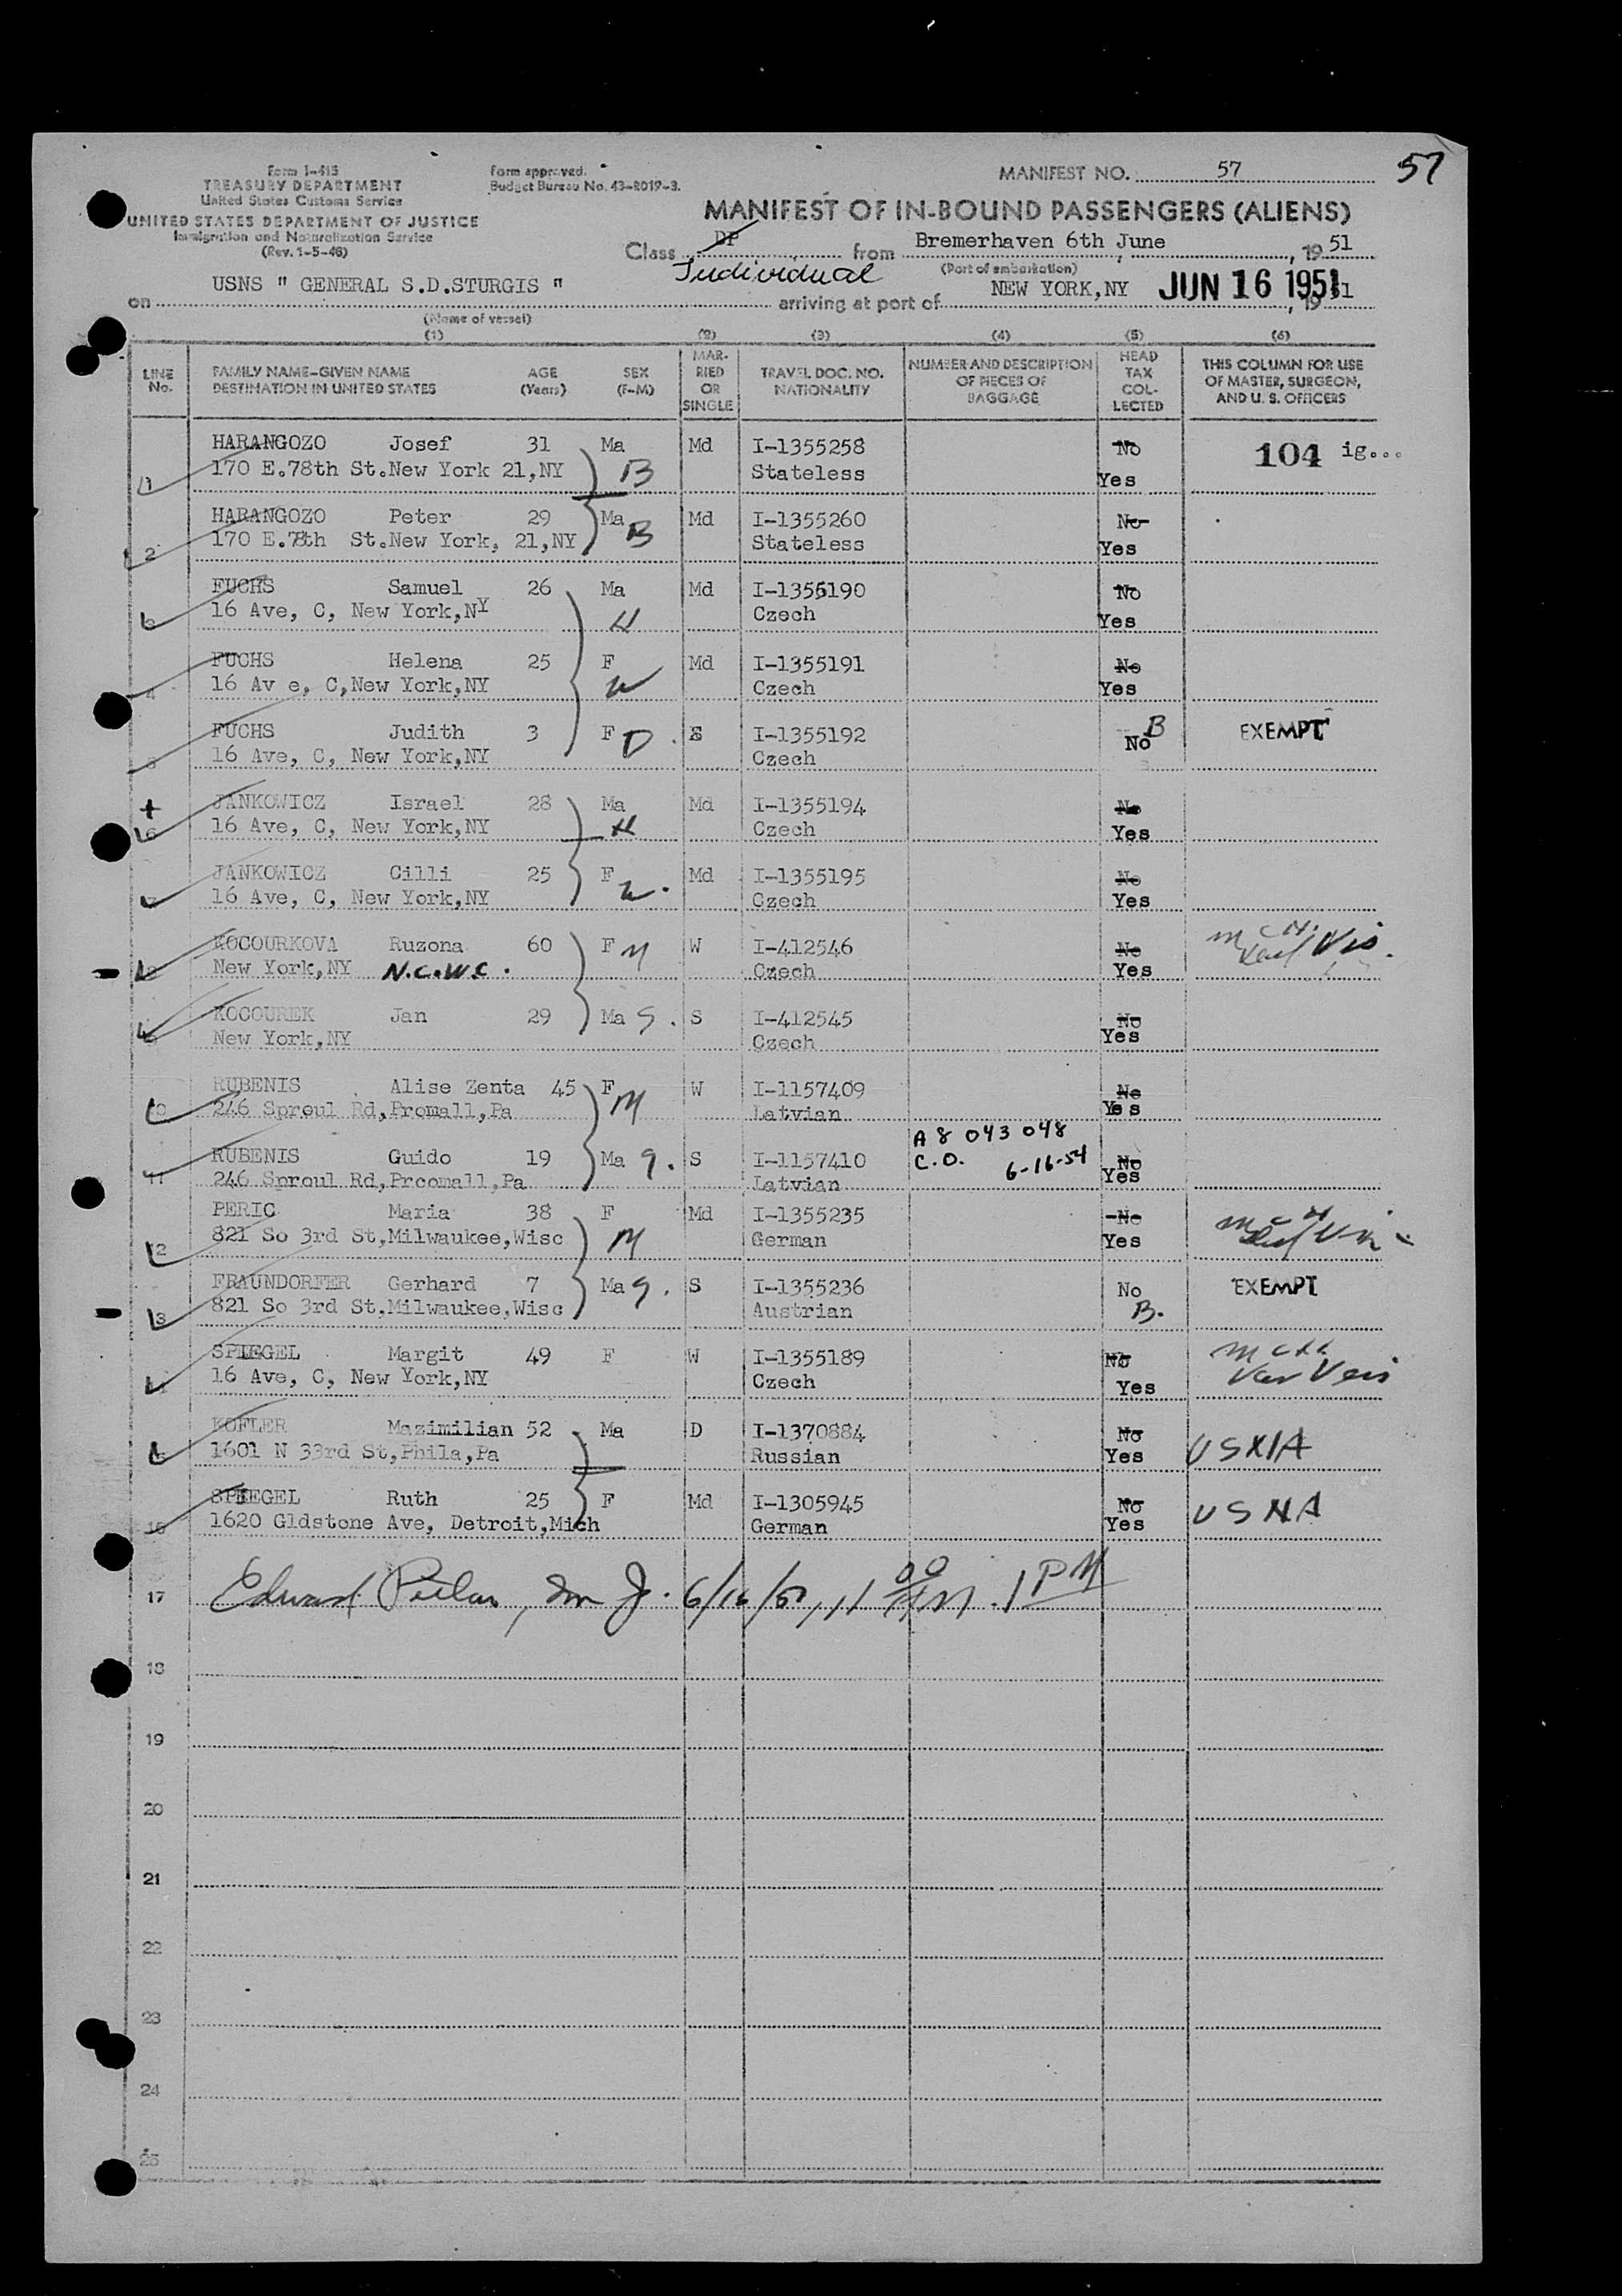 Form I-415
TREASURY DEPARTMENT
United States Customs Service
UNITED STATES DEPARTMENT OF JUSTICE
Immigration and Naturalization Service
(Rev. 1-5-48)
Form approved.
Budget Bureau No. 43-R019-3.
MANIFEST NO. 57
57
MANIFEST OF IN-BOUND PASSENGERS (ALIENS)
Class DP from Bremerhaven 6th June, 19 51
Individual
(Port of embarkation)
on USNS " GENERAL S.D.STURGIS " arriving at port of NEW YORK,NY JUN 16 1951
(Name of vessel)
(1) (2) (3) (4) (5) (6)
LINE No. FAMILY NAME-GIVEN NAME DESTINATION IN UNITED STATES AGE (Years) SEX (F-M) MARRIED OR SINGLE TRAVEL DOC. NO. NATIONALITY NUMBER AND DESCRIPTION OF PIECES OF BAGGAGE HEAD TAX COLLECTED THIS COLUMN FOR USE OF MASTER, SURGEON, AND U. S. OFFICERS
1 HARANGOZO Josef 31 Ma Md I-1355258 No 104 ig...
170 E.78th St.New York 21,NY B Stateless Yes
2 HARANGOZO Peter 29 Ma Md I-1355260 No
170 E.78th St.New York, 21,NY B Stateless Yes
3 FUCHS Samuel 26 Ma Md I-1355190 No
16 Ave, C, New York,NY H Czech Yes
4 FUCHS Helena 25 F Md I-1355191 No
16 Av e, C,New York,NY W Czech Yes
5 FUCHS Judith 3 F D S I-1355192 No B EXEMPT
16 Ave, C, New York,NY Czech
6 JANKOWICZ Israel 28 Ma Md I-1355194 No
16 Ave, C, New York,NY H Czech Yes
7 JANKOWICZ Cilli 25 F Md I-1355195 No
16 Ave, C, New York,NY W. Czech Yes
8 KOCOURKOVA Ruzona 60 F M W I-412546 No
New York,NY N.C.W.C. Czech Yes
9 KOCOUREK Jan 29 Ma S. S I-412545 No
New York,NY Czech Yes
10 RUBENIS Alise Zenta 45 F M W I-1157409 No
246 Sproul Rd,Promall,Pa Latvian Yes
11 RUBENIS Guido 19 Ma S. S I-1157410 A 8 043 048 No
246 Sproul Rd,Prcomall,Pa Latvian C.O. 6-16-54 Yes
12 PERIC Maria 38 F Md I-1355235 No
821 So 3rd St,Milwaukee,Wisc M German Yes
13 FRAUNDORFER Gerhard 7 Ma S. S I-1355236 No EXEMPT
821 So 3rd St.Milwaukee,Wisc Austrian B.
14 SPIEGEL Margit 49 F W I-1355189 No
16 Ave, C, New York,NY Czech Yes
15 KOFLER Mazimilian 52 Ma D I-1370884 No
1601 N 33rd St,Phila,Pa Russian Yes
16 SPIEGEL Ruth 25 F Md I-1305945 No USNA
1620 Gldstone Ave, Detroit,Mich German Yes
17 Edward 1 PM
18
19
20
21
22
23
24
25